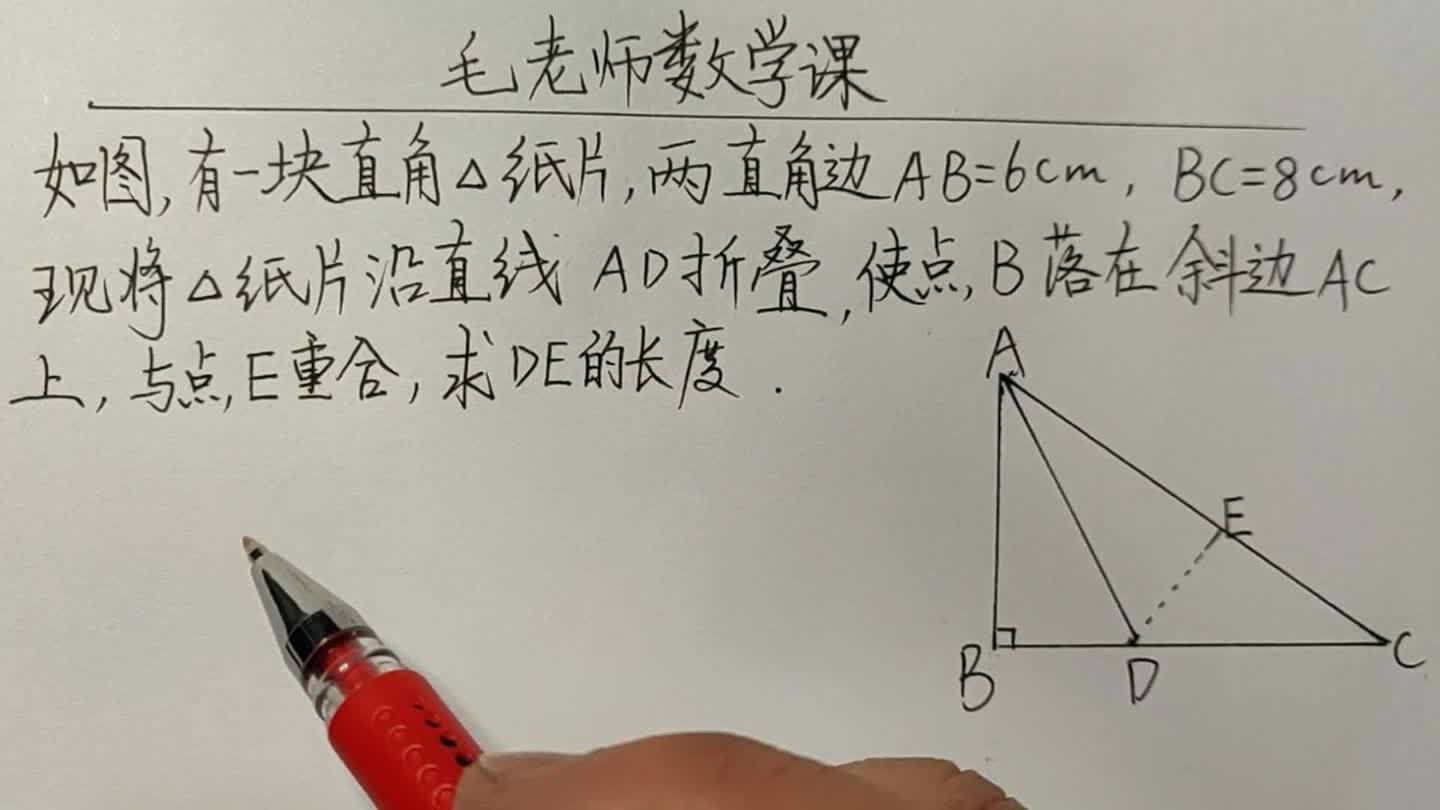 毛老师数学课
如图,有一块直角△纸片,两直角边AB=6cm, BC=8cm,
现将△纸片沿直线 AD折叠,使点B落在斜边AC
上,与点E重合,求DE的长度.
A
E
B
D
C